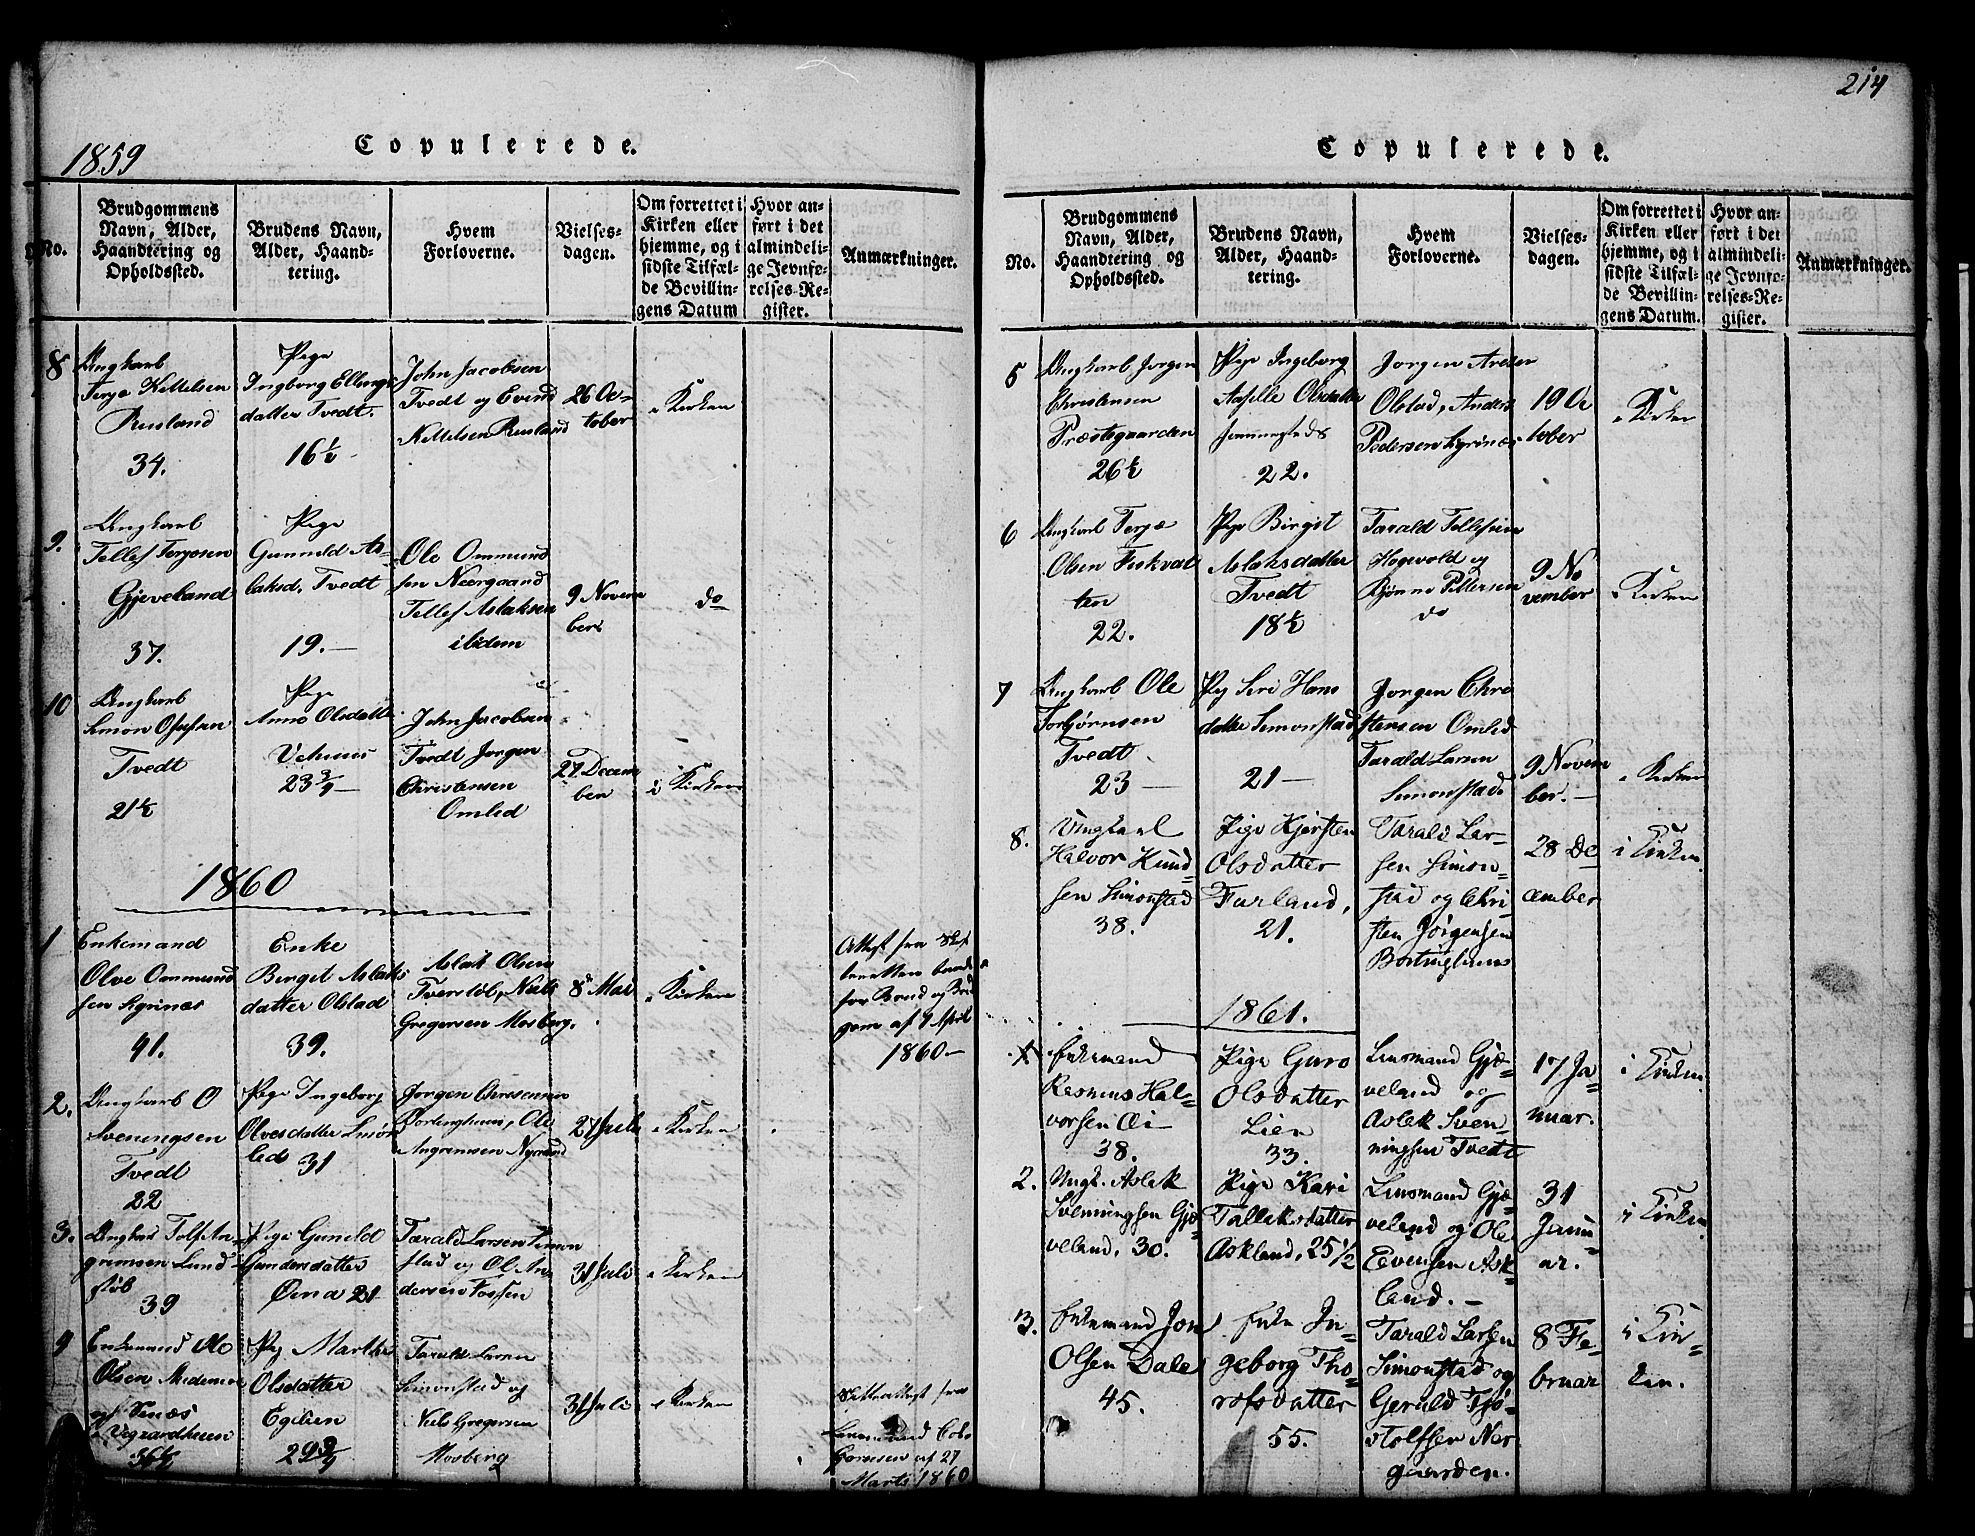 1859
Copulerede.
No.
Brudgommens
Navn, Alder,
Haandtering og
Opholdssted.
Brudens Navn,
Alder, Haand-
tering.
Hvem
Forloverne.
Vielses-
dagen.
Om forrettet i
Kirken eller
hjemme, og i
sidste Tilfæl-
de Bevillin-
gens Datum
Hvor an-
ført i det
almindeli-
ge Jevnfø-
relses-Re-
gister.
Anmærkninger.
8
Ungkarl
Terje Kittelsen
Rusland
34.
Pige
Ingborg Ellings
datter Tvedt.
16½
John Jacobsen
Tvedt og Evind
Kittelsen Rusland
26 Oc-
tober
i Kirken
9.
Ungkarl
Tellef Terjesen
Gjeveland
37.
Pige
Gunnild As-
laksd. Tvedt
19.
Ole Ommund
sen Neergaard
Tellef Aslaksen
ibidem
9 Novem
ber
do
10
Ungkarl
Simon
Tvedt
21½
Pige
Anne Olsdatte
23¾
John Jacobsen
Tvedt Jørgen
Christensen
Omlid
27 Decem
ber
i Kirken
1860
1
Enkemand
Olve Ommund
sen
41.
Enke
Birgit Aslaks
datter Olstad
39.
Aslak Olsen
Niels
Gregersen Mosberg.
8 Mai
i Kirken
Attest fra
for Brud og Brud
gom af 7 April
1860
2.
Ungkarl O
Sveningsen
Tvedt
22
Pige Ingeborg
Olvesdatter
31
Jørgen
Ole
27 Juli
i Kirken
3.
39
Pige Gunild
Gundersdatter
21
Tarald Larsen Simon
stad og Ol An
dersen Fossen
31 Juli
i Kirken
4
Enkemand Ole
Olsen
36½
Pig Marthe
Olsdatter
Egelien
29¾
Tarald Larsen
Simonstad og
Niels Gregersen
Mosberg
31 Juli
i Kirken
af 27
Marts 1860
214
Copulerede.
No.
Brudgommens
Navn, Alder,
Haandtering og
Opholdssted.
Brudens Navn,
Alder, Haand-
tering.
Hvem
Forloverne.
Vielses-
dagen.
Om forrettet i
Kirken eller
hjemme, og i
sidste Tilfæl-
de Bevillin-
gens Datum.
Hvor an-
ført i det
almindeli-
ge Jevnfø-
relses-Re-
gister.
Anmærkninger.
5
Ungkarl Jørgen
Christensen
Præstegaarden
26½
Pige Ingeborg
Olsdatter
22.
Olstad, Anders
Pedersen
19 Oc
tober
i Kirken
6
Ungkarl Terje
Olsen Fiskvat
ten
22.
Pige Birgit
Aslaksdatter
Tvedt
18½
Tarald Tellefsen
Hogevold og
do
9 No
vember
i Kirken
7
Ungkarl Ole
Torbjørnsen
Tvedt
23
Pig Siri Hans
datter Simonstad
21
Jørgen Chri
stensen Omlid
Tarald Larsen
Simonstad
9 Novem
ber.
i Kirken
8.
Ungkarl
Halvor Knud-
sen Simonstad
38.
Pige Kjersten
Olsdatter
Furland,
21.
Tarald Lar-
sen Simon-
stad og Chri-
sten Jørgensen
28 De
cember
i Kirken
1861.
1
Enkemand
Rasmus Hal-
vorsen
38.
Pige Guro
Olsdatter
Lien
33.
Lensmand Gjø-
veland og
Aslak Sven-
ningsen Tvedt
17 Ja-
nuar.
i Kirken
2.
Ungk. Aslak
Svenningsen Gjø
veland, 30.
Pige Kari
Tallaksdatter
Askland, 25½
Lensmand Gjø-
veland og Ole
Evensen Ask-
land.
31
Janu-
ar.
i Kirken
3.
Enkemand Jon
Olsen Dale
45.
Enke In-
geborg Tho-
rofsdatter
55.
Tarald Larsen
Simonstad og
Gerald Tjø-
stolfsen Ner-
gaarden.
8 Fe-
bruar
i Kir-
ken.